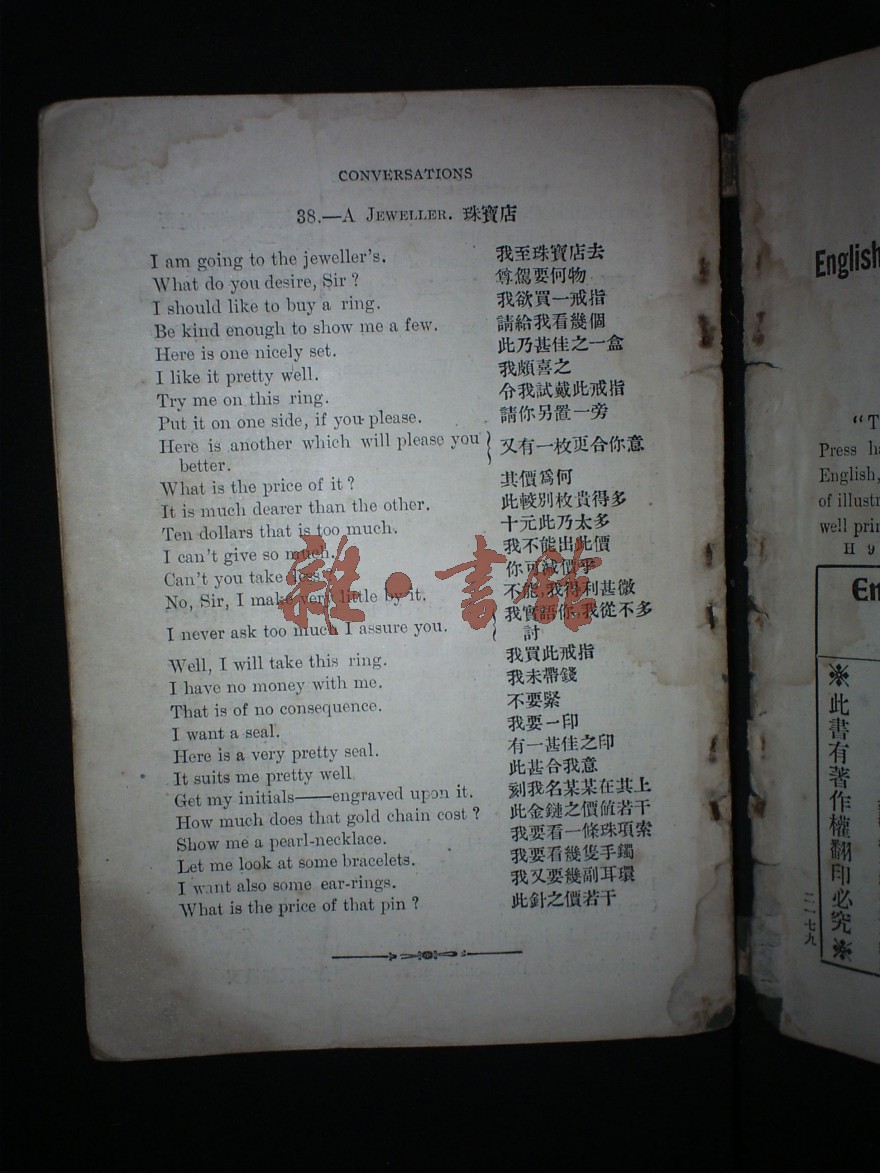 CONVERSATIONS
38.—A JEWELLER. 珠寶店
I am going to the jeweller's. 我至珠寶店去
What do you desire, Sir? 尊駕要何物
I should like to buy a ring. 我欲買一戒指
Be kind enough to show me a few. 請給我看幾個
Here is one nicely set. 此乃甚佳之一盒
I like it pretty well. 我頗喜之
Try me on this ring. 令我試戴此戒指
Put it on one side, if you please. 請你另置一旁
Here is another which will please you 又有一枚更合你意
better.
What is the price of it? 其價爲何
It is much dearer than the other. 此較別枚貴得多
Ten dollars that is too much. 十元此乃太多
I can't give so much. 我不能出此價
Can't you take less? 你可減價乎
No, Sir, I make very little by it. 不能,我得利甚微
I never ask too much I assure you. 我實語你,我從不多
討
Well, I will take this ring. 我買此戒指
I have no money with me. 我未帶錢
That is of no consequence. 不要緊
I want a seal. 我要一印
Here is a very pretty seal. 有一甚佳之印
It suits me pretty well 此甚合我意
Get my initials——engraved upon it. 刻我名某某在其上
How much does that gold chain cost? 此金鏈之價值若干
Show me a pearl-necklace. 我要看一條珠項索
Let me look at some bracelets. 我要看幾隻手鐲
I want also some ear-rings. 我又要幾副耳環
What is the price of that pin? 此針之價若干
雜·書館
English
"T
Press
English,
of illustr
well prin
H 9
En
※此書有著作權翻印必究※
二一七九